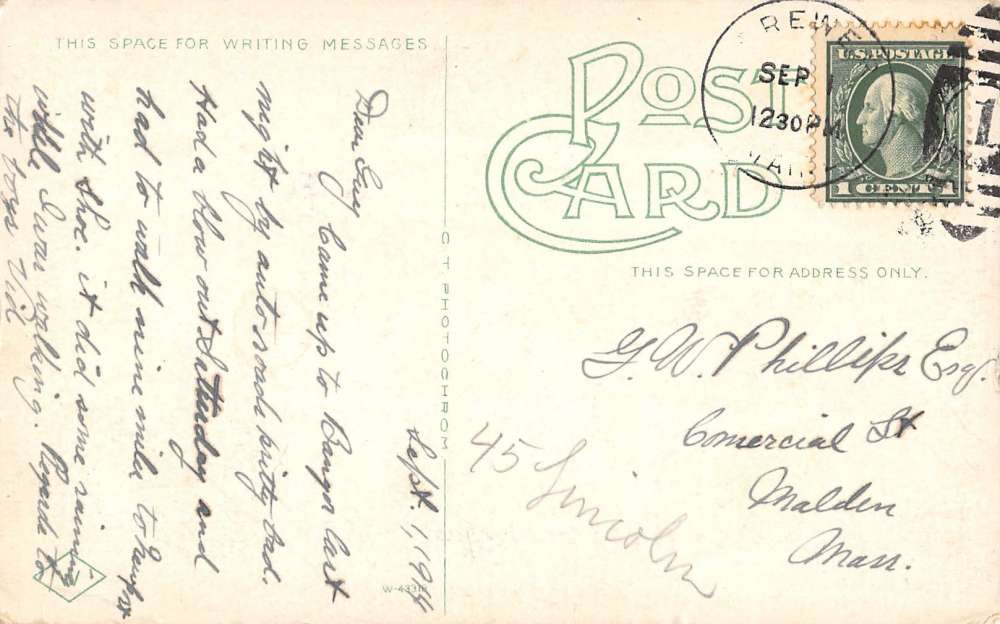 THIS SPACE FOR WRITING MESSAGES
Sept. 1, 1914
Dear Guy Came up to Bangor last
night by auto roads pritty bad.
Had a blow out Saturday and
had to walk nine miles to
with Shoe. it did some raining
while I was walking. Regards to
the boys Vid
C T PHOTOCHROM
POST CARD
REWE
SEP 1
1230 PM
MAI
U.S. POSTAGE
1 CENT 1
THIS SPACE FOR ADDRESS ONLY.
G. W. Phillips Esq.
Comercial St
Malden
Mass.
45 Lincoln